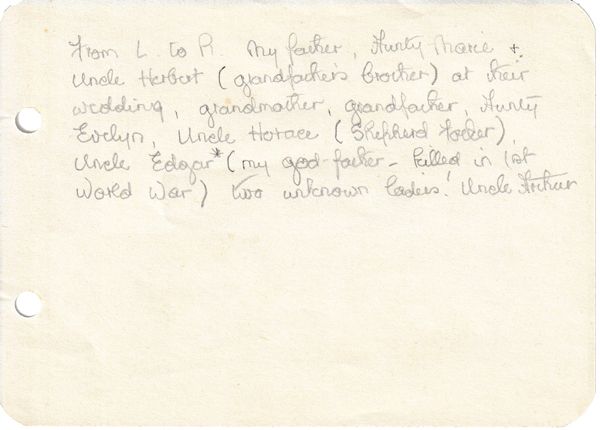 From L. to R. My father, Aunty Marie +
Uncle Herbert (grandfather's brother) at their
wedding, grandmother, grandfather, Aunty
Evelyn, Uncle Horace (Shepherd)
Uncle Edgar* (my god-father - killed in 1st
World War) two unknown ladies! Uncle Arthur